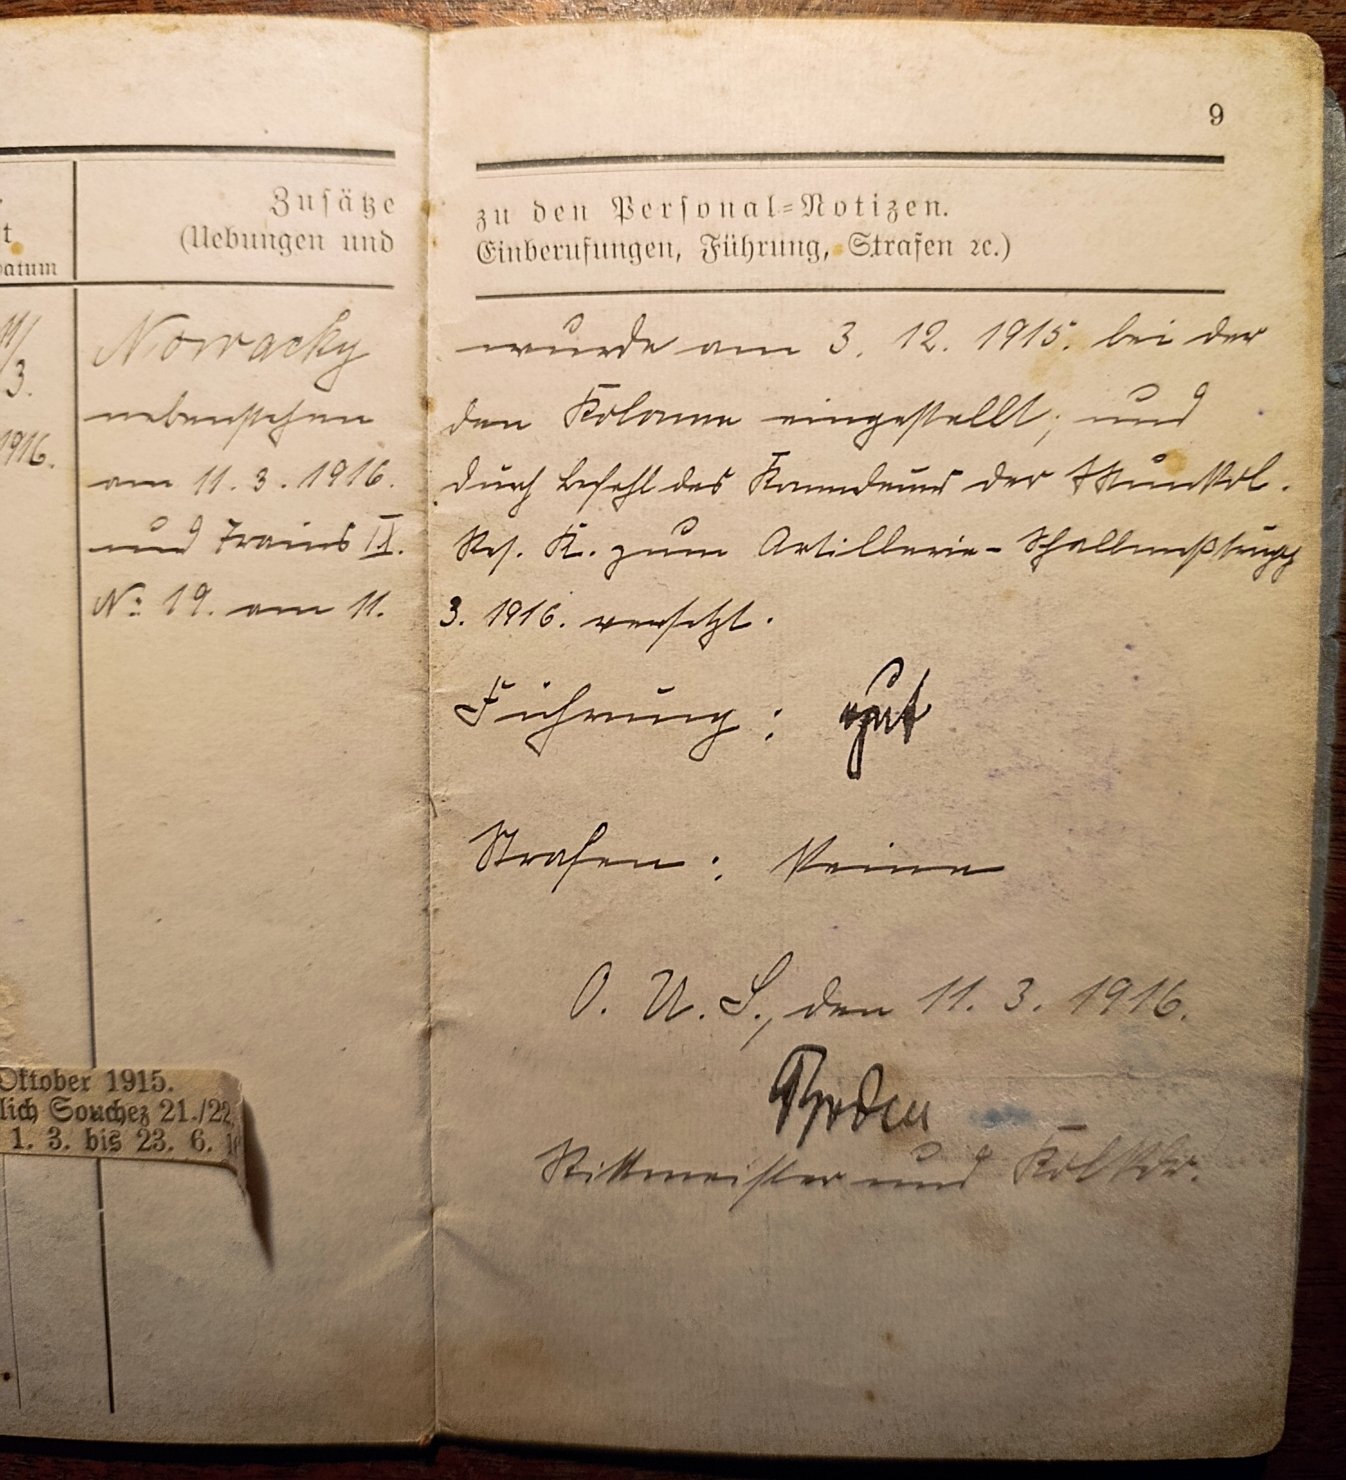 9
t
Datum
Zusätze zu den Personal=Notizen.
(Uebungen und Einberufungen, Führung, Strafen ꝛc.)
11/
3.
1916.
Nowacky wurde am 3. 12. 1915. bei der
nebenstehen den Kolonne eingestellt, und
am 11. 3. 1916. durch Befehl des Komdeurs der
und Trains IX. Res. K. zum Artillerie-Schallmeßtrupp
No: 19. am 11. 3. 1916. versetzt.
Führung: gut
Strafen: Keine
O. U. S., den 11. 3. 1916.
Rittmeister und Kol.Kdr.
Oktober 1915.
lich Souchez 21./22
1. 3. bis 23. 6. 16